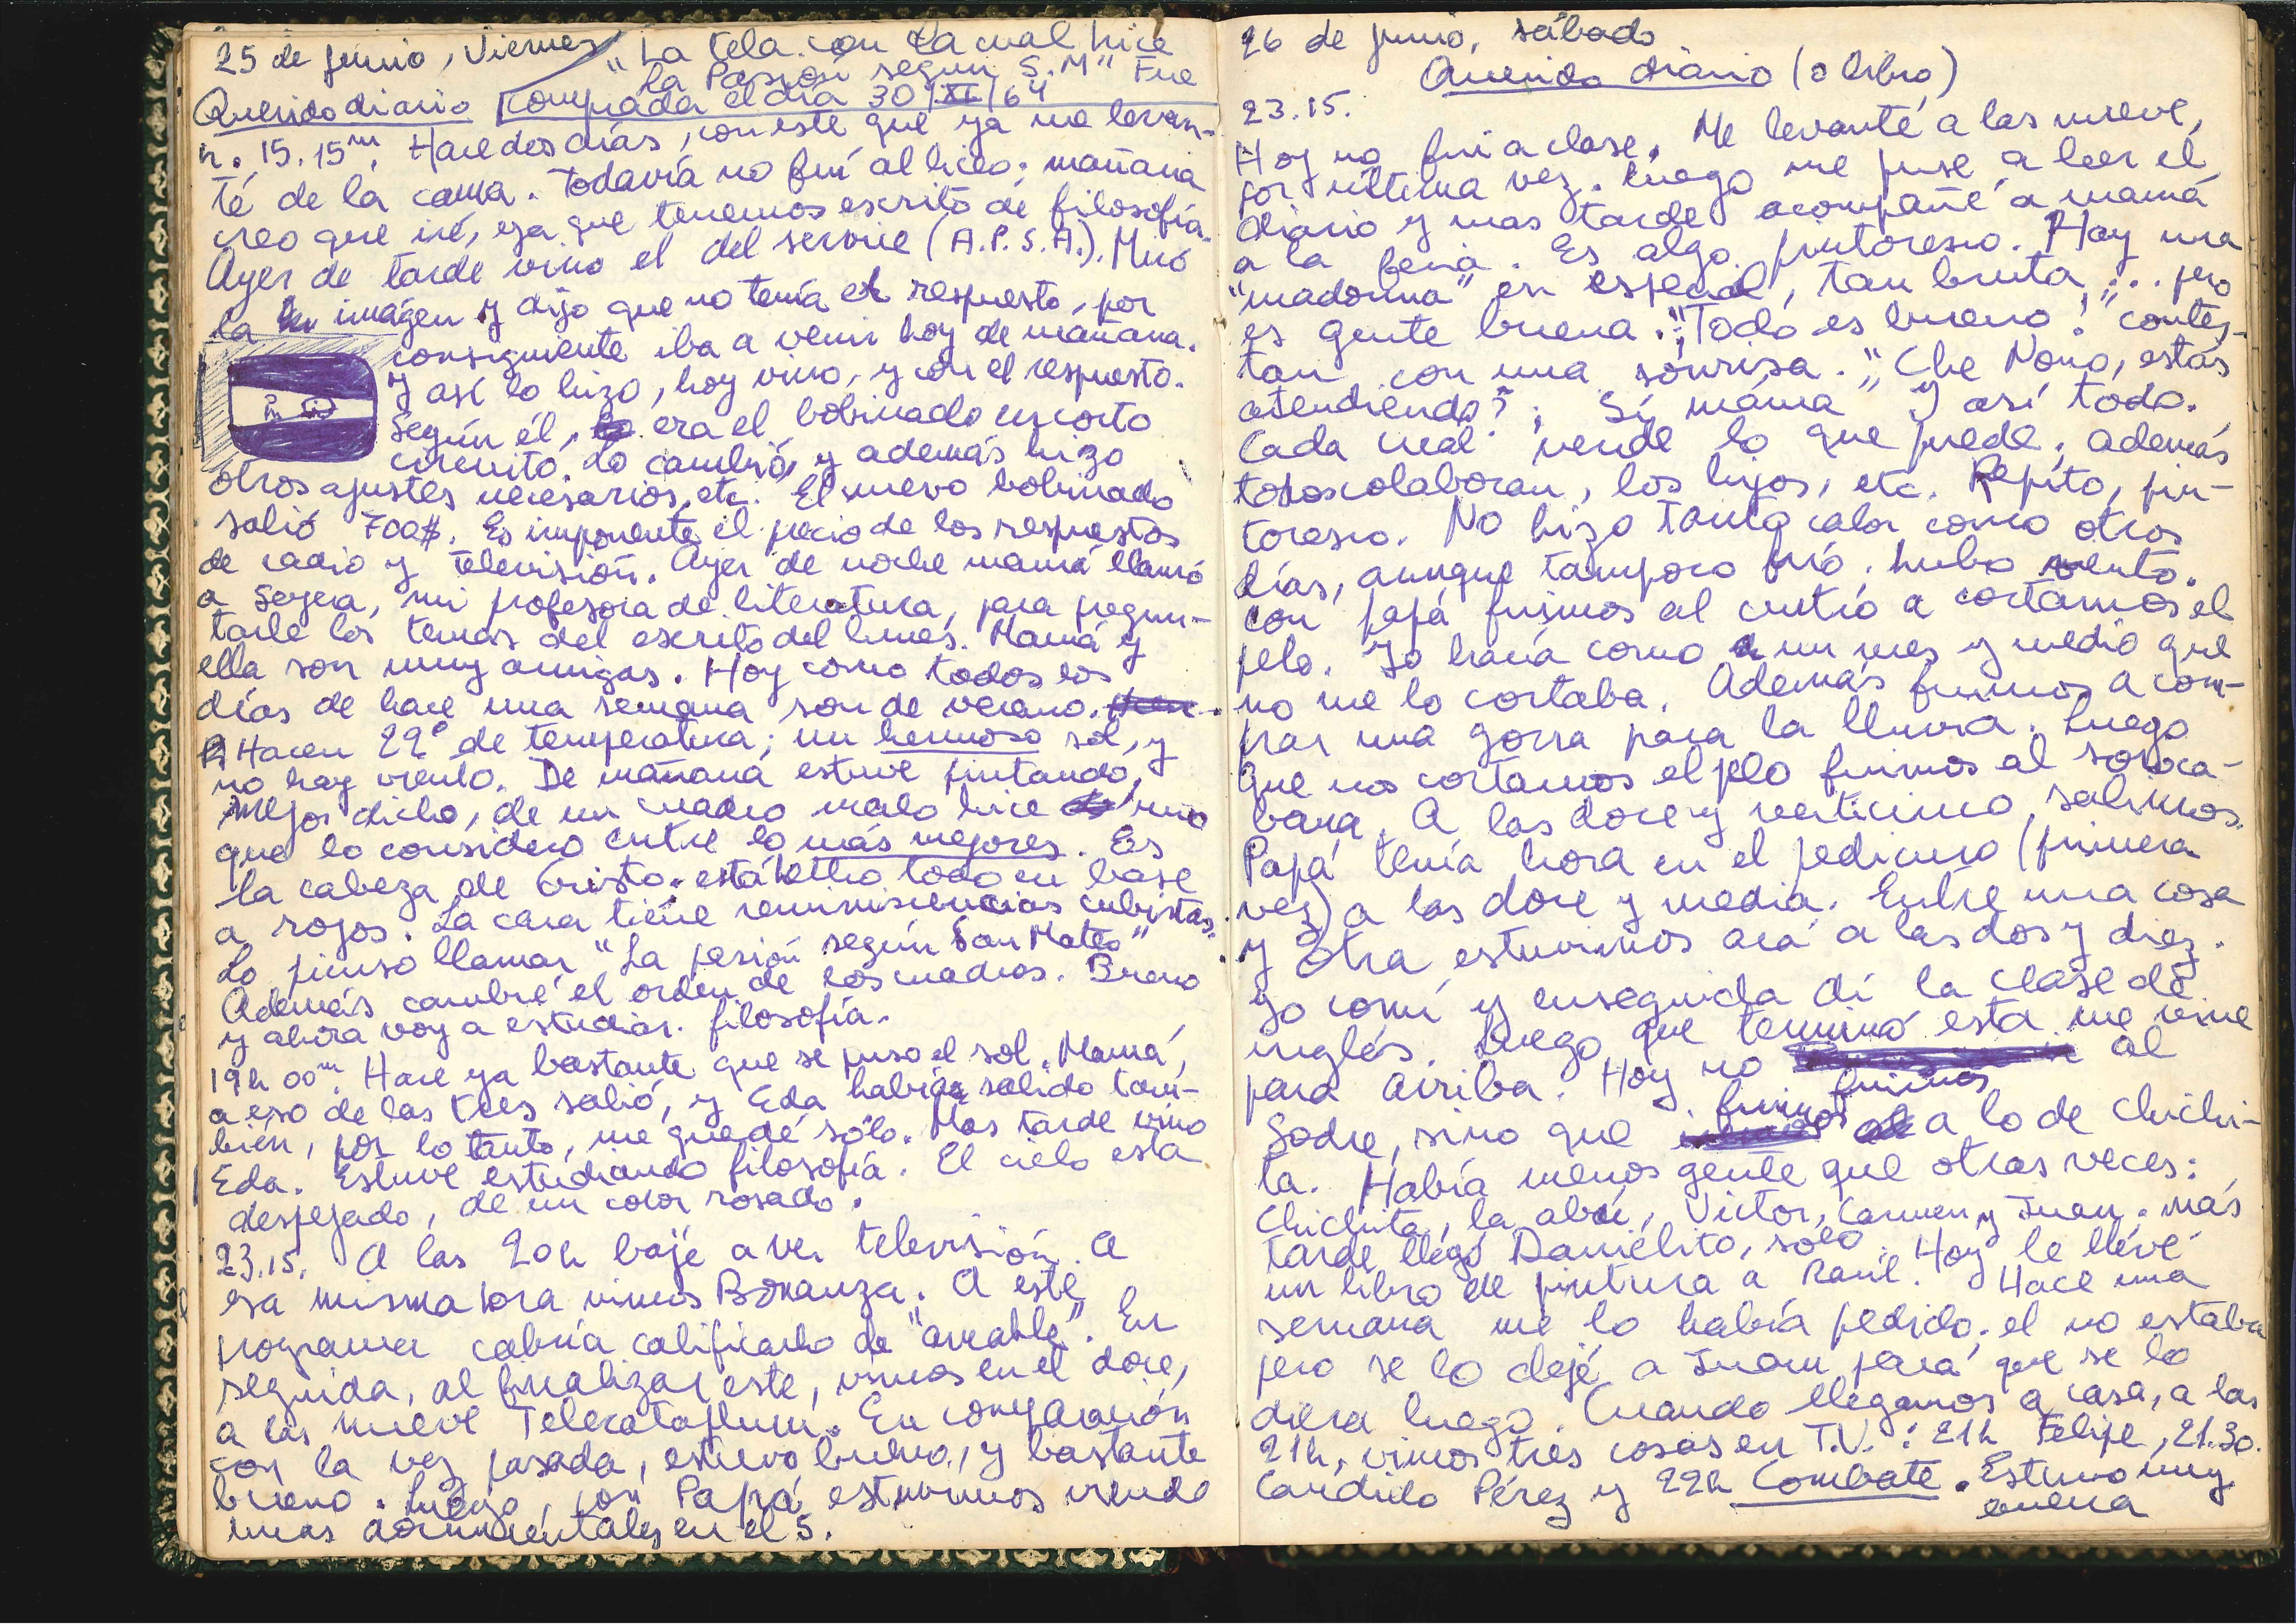 25 de junio, Viernes
"La tela con la cual hice
la Pasión según S.M" Fue
comprada el día 30/XI/64
Querido diario
h. 15.15m. Hace dos días, con este que ya me levan-
té de la cama. Todavía no fuí al liceo; mañana
creo que iré, ya que tenemos escrito de filosofía.
Ayer de tarde vino el del service (A.P.S.A.). Miró
la imágen y dijo que no tenía el respuesto, por
consiguiente iba a venir hoy de mañana.
Y así lo hizo, hoy vino, y con el respuesto.
Según él, era el bobinado en corto
circuito. Lo cambió, y además hizo
otros ajustes necesarios, etc. El nuevo bobinado
salió 700$. Es imponente el precio de los respuestos
de radio y televisión. Ayer de noche mamá llamó
a Seyera, mi profesora de literatura, para pregun-
tarle los temas del escrito del lunes. Mamá y
ella son muy amigas. Hoy como todos los
días de hace una semana son de verano.
Hacen 22° de temperatura; un hermoso sol, y
no hay viento. De mañana estuve pintando,
mejor dicho, de un cuadro malo hice uno
que lo considero entre lo más mejores. Es
la cabeza de Cristo. está hecho todo en base
a rojos. La cara tiene reminisiencias cubistas.
Lo pienso llamar "La pasión según San Mateo"
Además cambié el orden de los cuadros. Bueno
y ahora voy a estudiar. filosofía.
19h 00m. Hace ya bastante que se puso el sol. Mamá,
a eso de las tres salió, y Eda había salido tam-
bién, por lo tanto, me quedé sólo. Mas tarde vino
Eda. Estuve estudiando filosofía. El cielo esta
despejado, de un color rosado.
23.15. A las 20h bajé a ver televisión. A
esa misma hora vimos Bonanza. A este
programa cabría calificarlo de "ameable". En
seguida, al finalizar este, vimos en el doce,
a las nueve Telecataplum. En comparación
con la vez pasada, estuvo bueno, y bastante
bueno. Luego, con Papá estuvimos viendo
unas documentales en el 5.
26 de junio, sábado
Querido diario (o libro)
23.15.
Hoy no fui a clase. Me levanté a las nueve,
por última vez. Luego me puse a leer el
diario y mas tarde acompañé a mamá
a la feria. Es algo pintoresco. Hay una
"madonna" en especial, tan bruta,... pero
es gente buena. "¡Todo es bueno!" contes-
tan con una sonrisa. "Che Nono, estás
atendiendo?; Sí máma" Y así todo.
Cada cual vende lo que puede; además
todos colaboran, los hijos, etc. Repito, pin-
toresco. No hizo tanto calor como otros
días, aunque tampoco frió. hubo viento.
con papá fuimos al centro a cortarnos el
pelo. Yo hacía como un mes y medio que
no me lo cortaba. Además fuimos a com-
prar una gorra para la lluvia. Luego
que nos cortamos el pelo fuimos al soroca-
bana. A las doce y veiticinco, salimos.
Papá tenía hora en el pedicuro (primera
vez) a las doce y media. Entre una cosa
y otra estuvimos acá a las dos y diez.
Yo comí y enseguida dí la clase de
inglés. Luego que terminó esta me vine
para arriba. Hoy no fuimos al
Sodre, sino que fuimos a lo de Chichi-
ta. Había menos gente que otras veces:
Chichita, la abu, Victor, Carmen y Juan. más
tarde llegó Danielito, solo. Hoy le llevé
un libro de pintura a Raúl. Hace una
semana me lo había pedido; el no estaba
pero se lo dejé a Juan para que se lo
diera luego. Cuando llegamos a casa, a las
21h, vimos tres cosas en T.V.: 21h Felipe, 21.30.
Candido Pérez y 22h Combate. Estuvo muy
buena